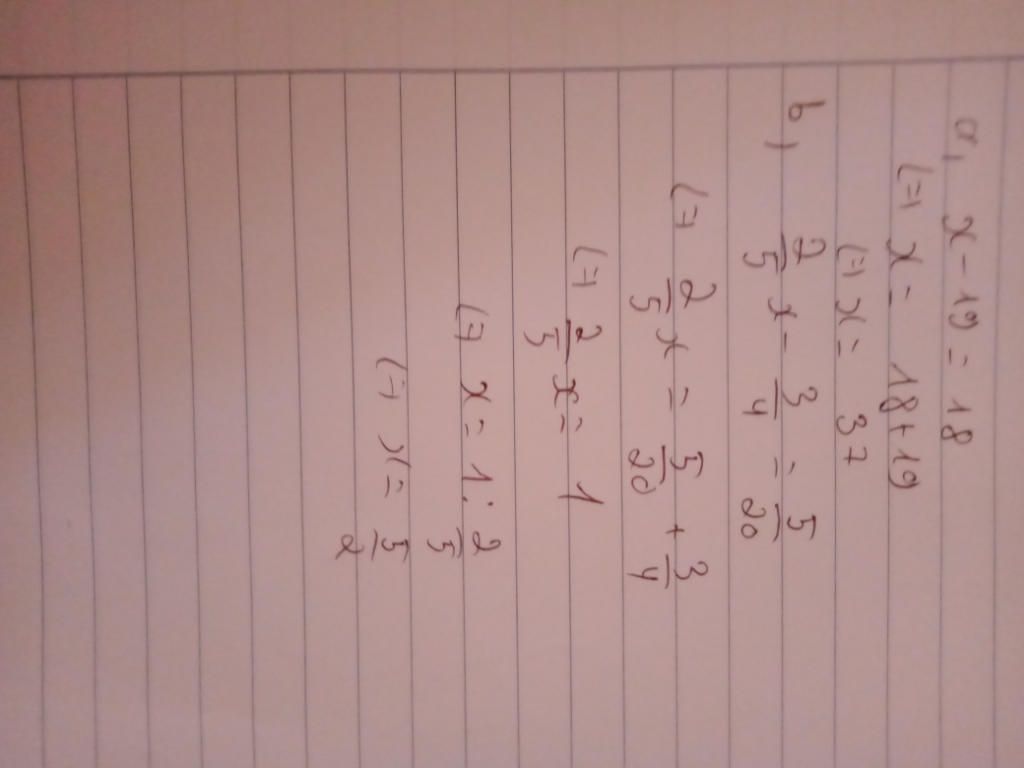 a, x - 19 = 18
(=) x = 18 + 19
(=) x = 37
b) 2/5 x - 3/4 = 5/20
(=) 2/5 x = 5/20 + 3/4
(=) 2/5 x = 1
(=) x = 1 : 2/5
(=) x = 5/2